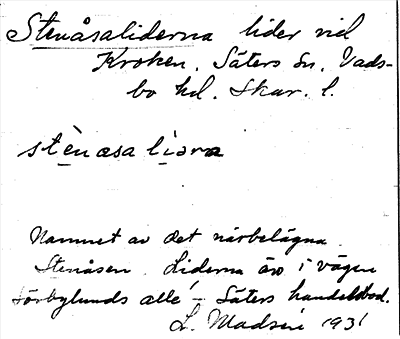 Stenåsaliderna lider vid
Kroken. Säters sn. Vads-
bo hd. Skar. l.
stènasa liɔra
Namnet av det närbelägna
Stenåsen. Liderna äro i vägen
Sörbylunds allé – Säters handelsbod.
L. Madsén 1931